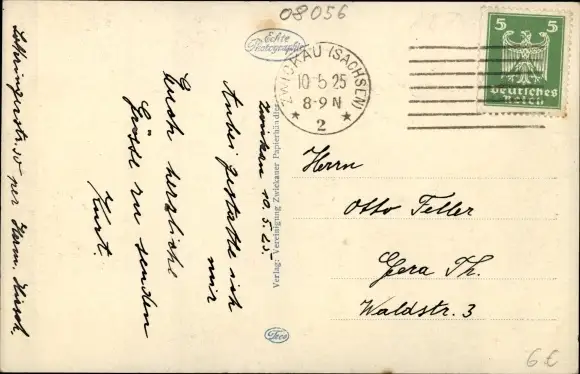 08056
Echte
Photographie
5 5
Deutsches
Reich
ZWICKAU (SACHSEN)
10.5.25
8-9 N
* 2 *
Zwickau 10.5.25.
Anbei gestatte ich
mir
Euch herzliche
Grüsse zu senden
Kurt.
per Herm. Hirsch.
Verlag: Vereinigung Zwickauer Papierhändler
Herrn
Otto Feller
Gera Th.
Waldstr. 3
6€